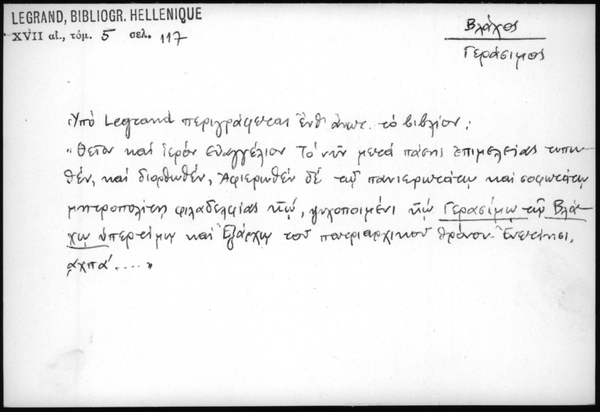 LEGRAND, BIBLIOGR. HELLENIQUE
XVII αἰ., τόμ. 5 σελ. 117
Βλάχος
Γεράσιμος
Ὑπό Legrand περιγράφεται ἔνθ' ἀνωτ. τό βιβλίον:
"Θεῖον καί ἱερόν εὐαγγέλιον τό νῦν μετά πάσης ἐπιμελείας τυπω
θέν, καί διορθωθέν, Ἀφιερωθέν δέ τῷ πανιερωτάτῳ καί σοφωτάτῳ
μητροπολίτῃ φιλαδελφίας κῷ, Γερασίμῳ τῷ Βλά-
χῳ ὑπερτίμῳ καί Ἐξάρχῳ τοῦ πατριαρχικοῦ θρόνου. Ἐνετίησι,
αχπά...."